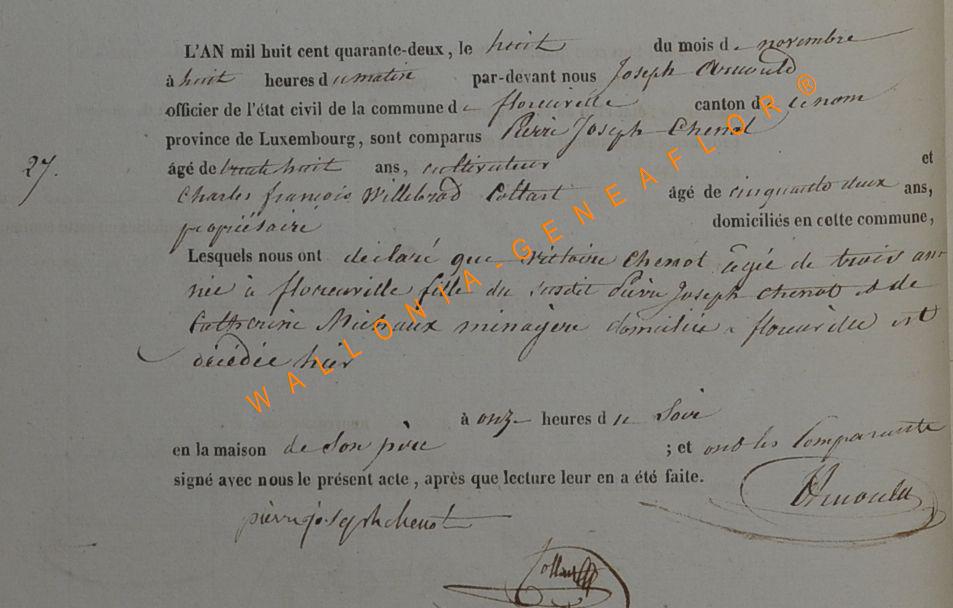 L'AN mil huit cent quarante-deux, le huit du mois de novembre
à huit heures du matin par-devant nous Joseph Arnould
officier de l'état civil de la commune de florenville canton de ce nom
province de Luxembourg, sont comparus Pierre Joseph Chenot
27. âgé de trente huit ans, cultivateur et
Charles françois Willebrod Collart âgé de cinquante deux ans,
propriétaire domiciliés en cette commune,
Lesquels nous ont déclaré que victoire Chenot agée de trois ans
née à florenville fille du susdit pierre Joseph chenot et de
Catherine Michaux ménagère domiciliés à florenville est
décédée hier
à onze heures du Soir
en la maison de Son père ; et ont les Comparants
signé avec nous le présent acte, après que lecture leur en a été faite.
Arnould
pierre joseph chenot
Collart
WALLONIA-GENEAFLOR®